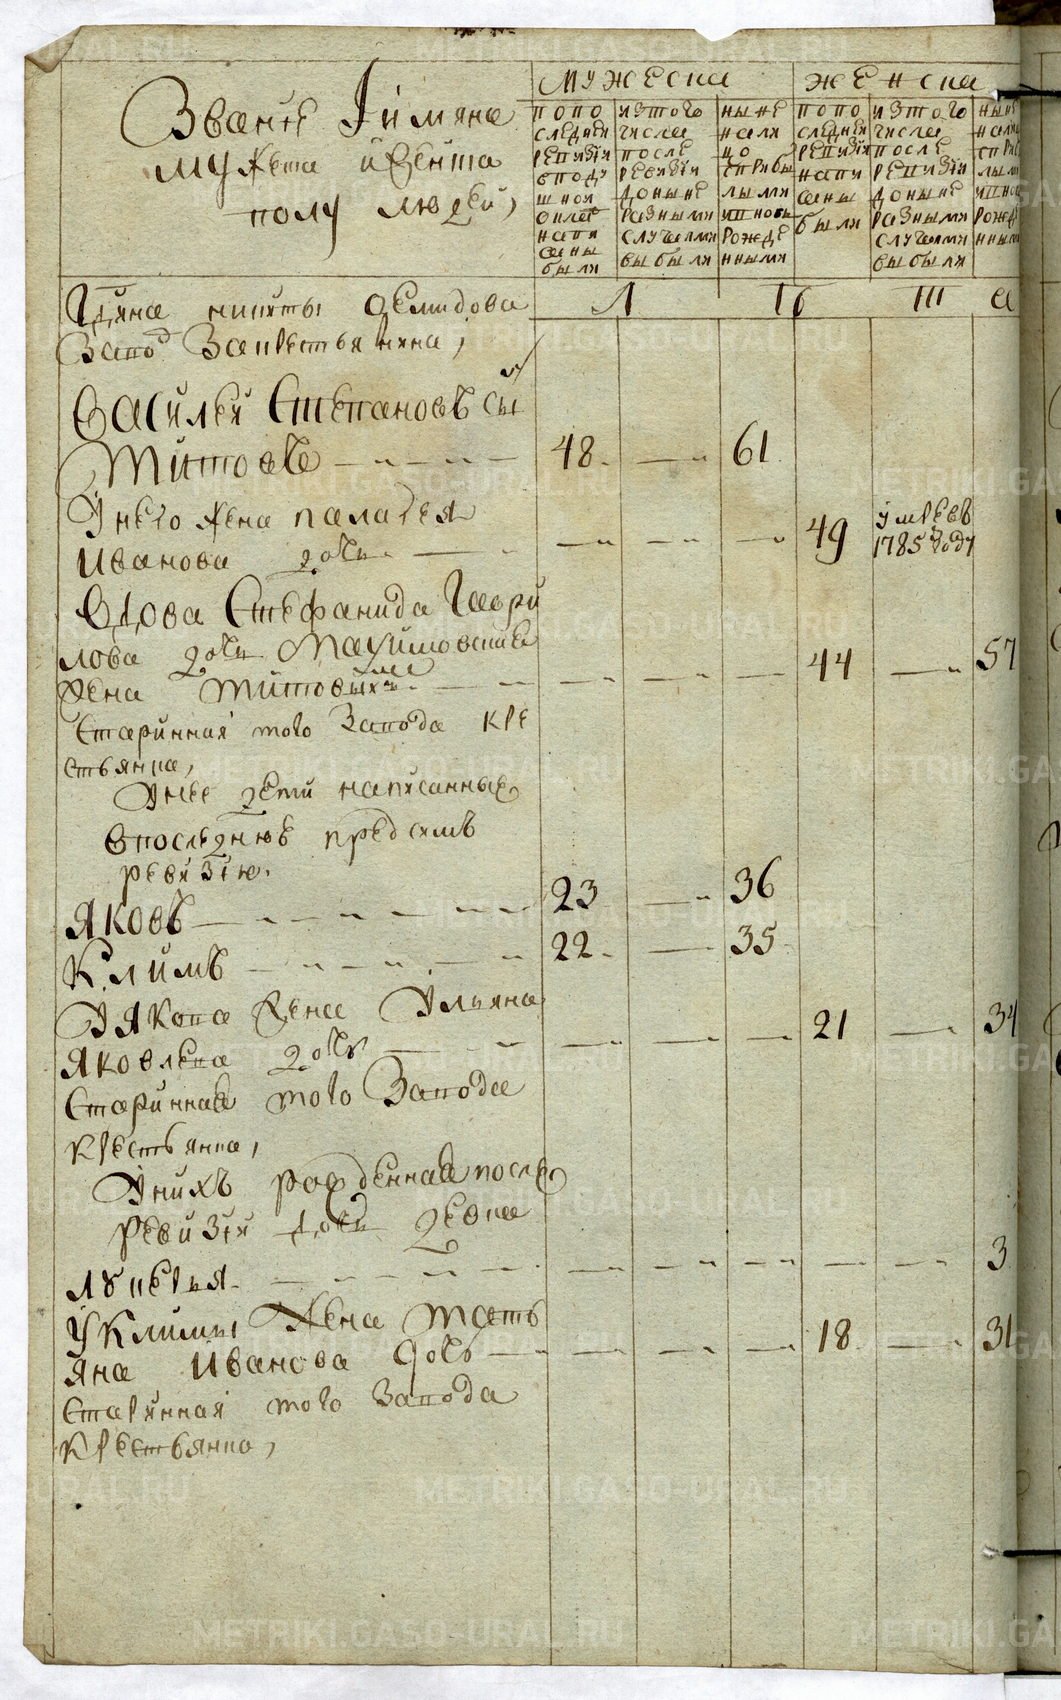 Званiе Iимяна
мужеска иженска
полу людей,
мужеска
женска
попо
следней
ревизiи
вподу
шной
оклас
напи
саны
были
изтого
числа
после
ревизiи
доныне
разными
случаями
выбыли
ныне
нали
цо
сприбы
лыми
ивновь
рожде
нными
попо
следней
ревизiи
напи
саны
были
изтого
числа
после
ревизiи
доныне
разными
случаями
выбыли
ныне
нали
никиты демидова
Завод
Василей Степановъ сы
Титовъ 48. 61
Унего жена палагея
Иванова дочь 49 умре въ
1785 году
Вдова Стефанида Гаври
лова дочь
жена Титовыхъ 44 57
Старинная того Завода кре
стьянка,
Унее дети написанныхъ
впоследнюю предсимъ
ревизiю.
Яковъ 23 36
Климъ 22. 35
У Якова жена Ульяна
Яковлева дочь 21 34
Старинная того Завода
крестьянка,
Унихъ рожденная после
ревизiи дочь девка
Лукерья 3
У Клима жена Тать
яна Иванова дочь 18 31
Старинная того Завода
Крестьянка,
METRIKI.GASO-URAL.RU